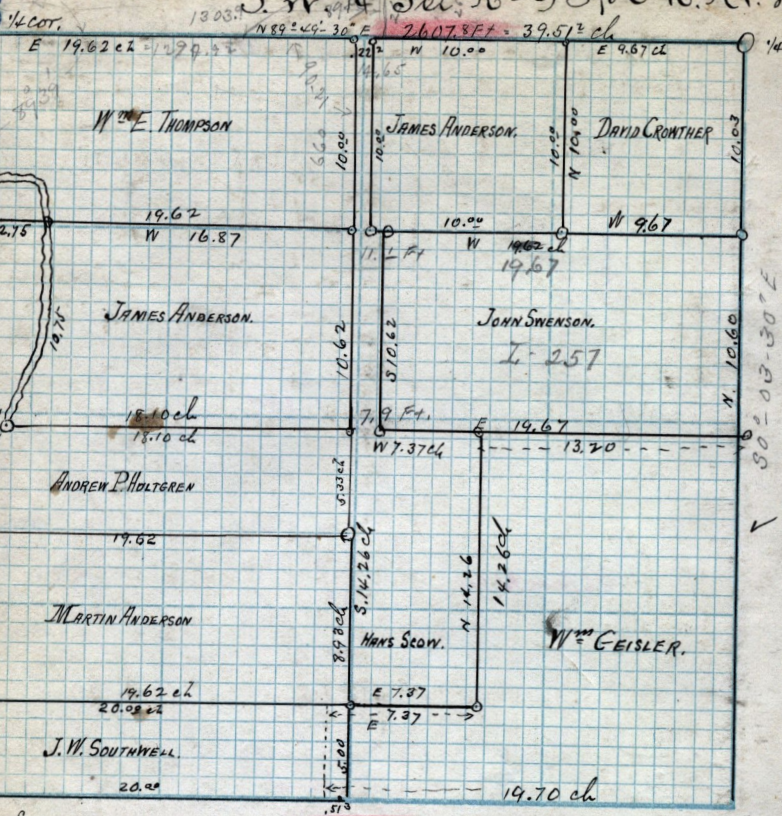 1/4 COR.
1303.
N 89°-49'-30" E
2607.8 Ft = 39.51² ch
1/4
E 19.62 ch
W 10.00
E 9.67 ch
Wm E. THOMPSON
JAMES ANDERSON.
DAVID CROWTHER
660
10.00
10.00
10.00
N 10.00
10.03
2.75
19.62
W 16.87
10.00
W
19.62 ch
19.67
W 9.67
11.1 Ft
JAMES ANDERSON.
JOHN SWENSON.
I-257
10.75
10.62
S 10.62
N. 10.60
S0°-03-30"E
18.10 ch
18.10 ch
7.9 Ft.
W 7.37 ch
E 19.67
13.20
ANDREW P. HOLTGREN
5.33 ch
19.62
S. 14.26 ch
N 14.26
14.26 ch
MARTIN ANDERSON
8.93 ch
HANS SCOW.
Wm GEISLER.
19.62 ch
20.09 ch
E 7.37
E 7.37
J. W. SOUTHWELL.
5.00
20.00
.51
19.70 ch